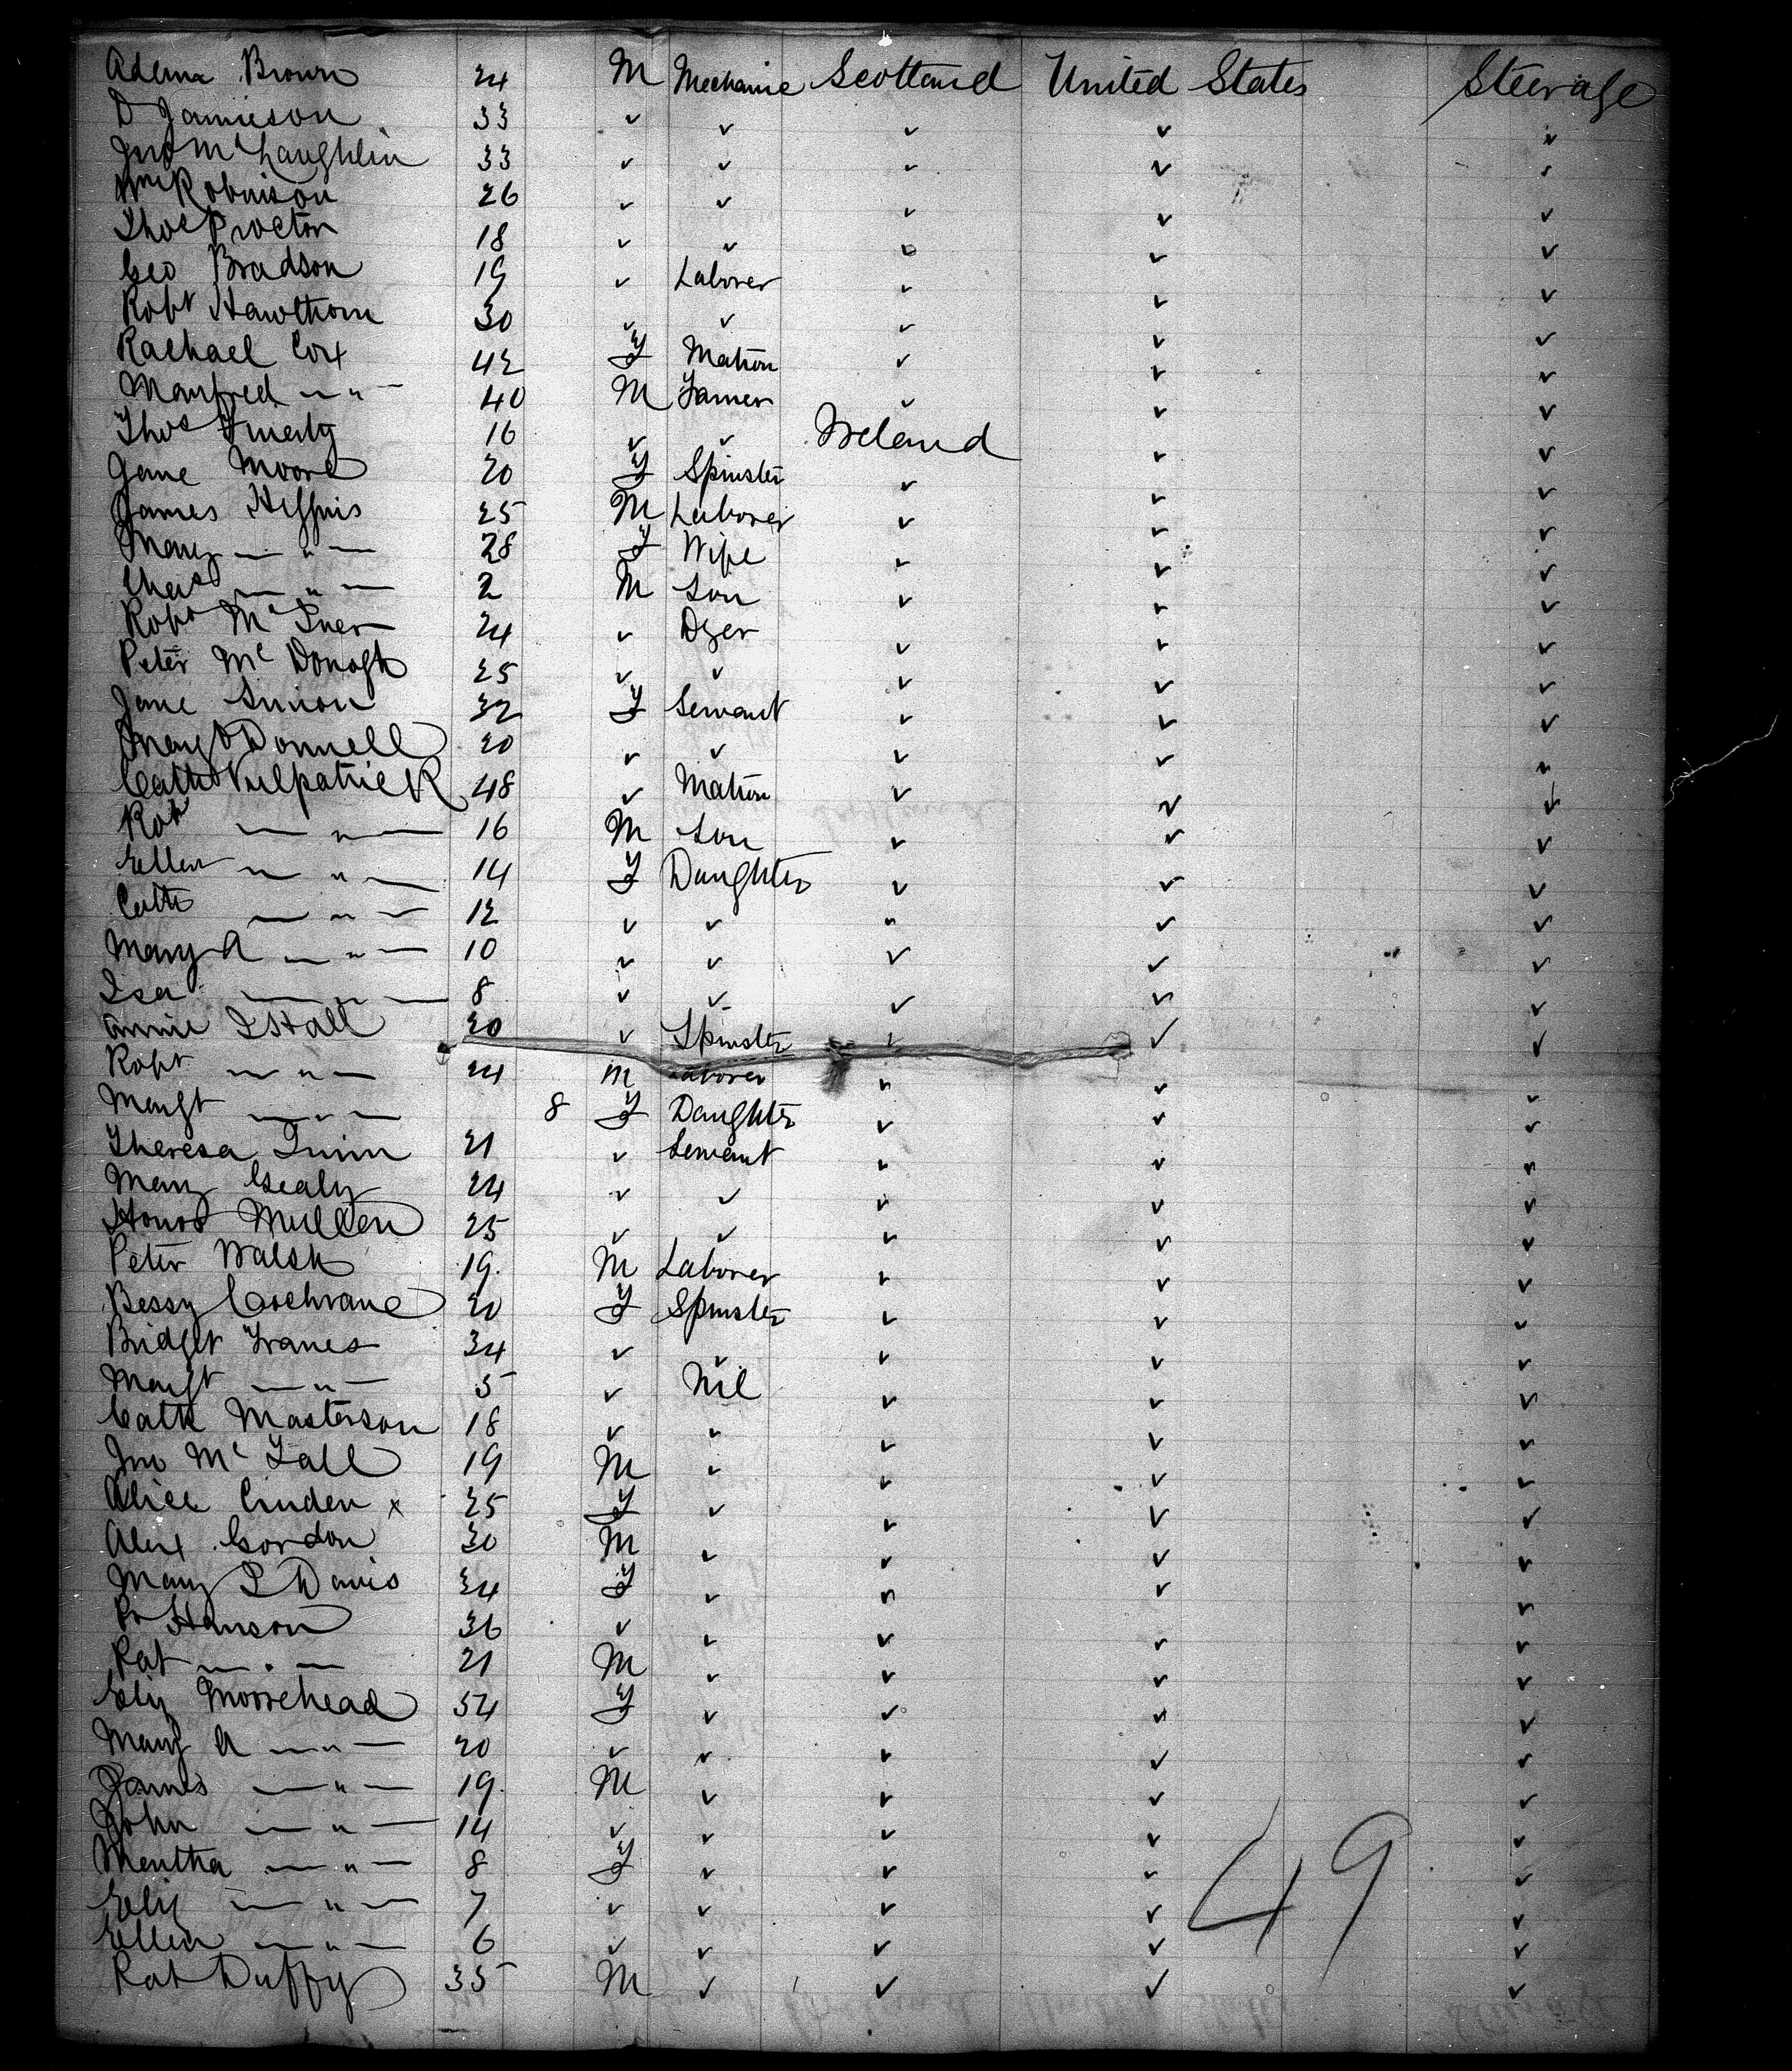 Adam Brown 24 M Mechanic Scotland United States Steerage
D Jamieson 33 " " " " "
Jno McLaughlin 33 " " " " "
Wm Robinson 26 " " " " "
Thos Procton 18 " " " " "
Geo Bradson 19 " Laborer " " "
Robt Hawthorn 30 " " " " "
Rachael Cox 42 F Matron " " "
Manfred — " — 40 M Farmer " " "
Thos 16 " " Ireland " "
Jane Moore 20 F Spinster " " "
James 25 M Laborer " " "
Mary — " — 28 F Wife " " "
Chas — " — 2 M Son " " "
Robt Mc 24 " Dyer " " "
Peter McDonogh 25 " " " " "
Jane 32 F Servant " " "
Mary O'Donnell 20 " " " " "
Cath Kilpatrick 48 " Matron " " "
Robt — " — 16 M Son " " "
Ellen — " — 14 F Daughter " " "
Cath — " — 12 " " " " "
Mary A — " — 10 " " " " "
Isa — " — 8 " " " " "
Annie I Hall 20 " Spinster " " "
Robt — " — 24 M Laborer " " "
Margt — " — 8 F Daughter " " "
Theresa Quinn 21 " Servant " " "
Mary Gealy 24 " " " " "
Honor Mullen 25 " " " " "
Peter Walsh 19 M Laborer " " "
Bessy Cochrane 20 F Spinster " " "
Bridget Franes 34 " " " " "
Margt — " — 5 " Nil " " "
Cath Masterson 18 " " " " "
Jno McFall 19 M " " " "
Alice Cruden x 25 F " " " "
Alex Gordon 30 M " " " "
Mary I Davis 34 F " " " "
Hanson 36 " " " " "
Pat — " — 21 M " " " "
Eliz Moorehead 54 F " " " "
Mary A — " — 20 " " " " "
James — " — 19 M " " " "
John — " — 14 " " " " "
Mentha — " — 8 F " " " "
Eliz — " — 7 " " " " "
Ellen — " — 6 " " " " "
Pat Duffy 35 M " " " "
49